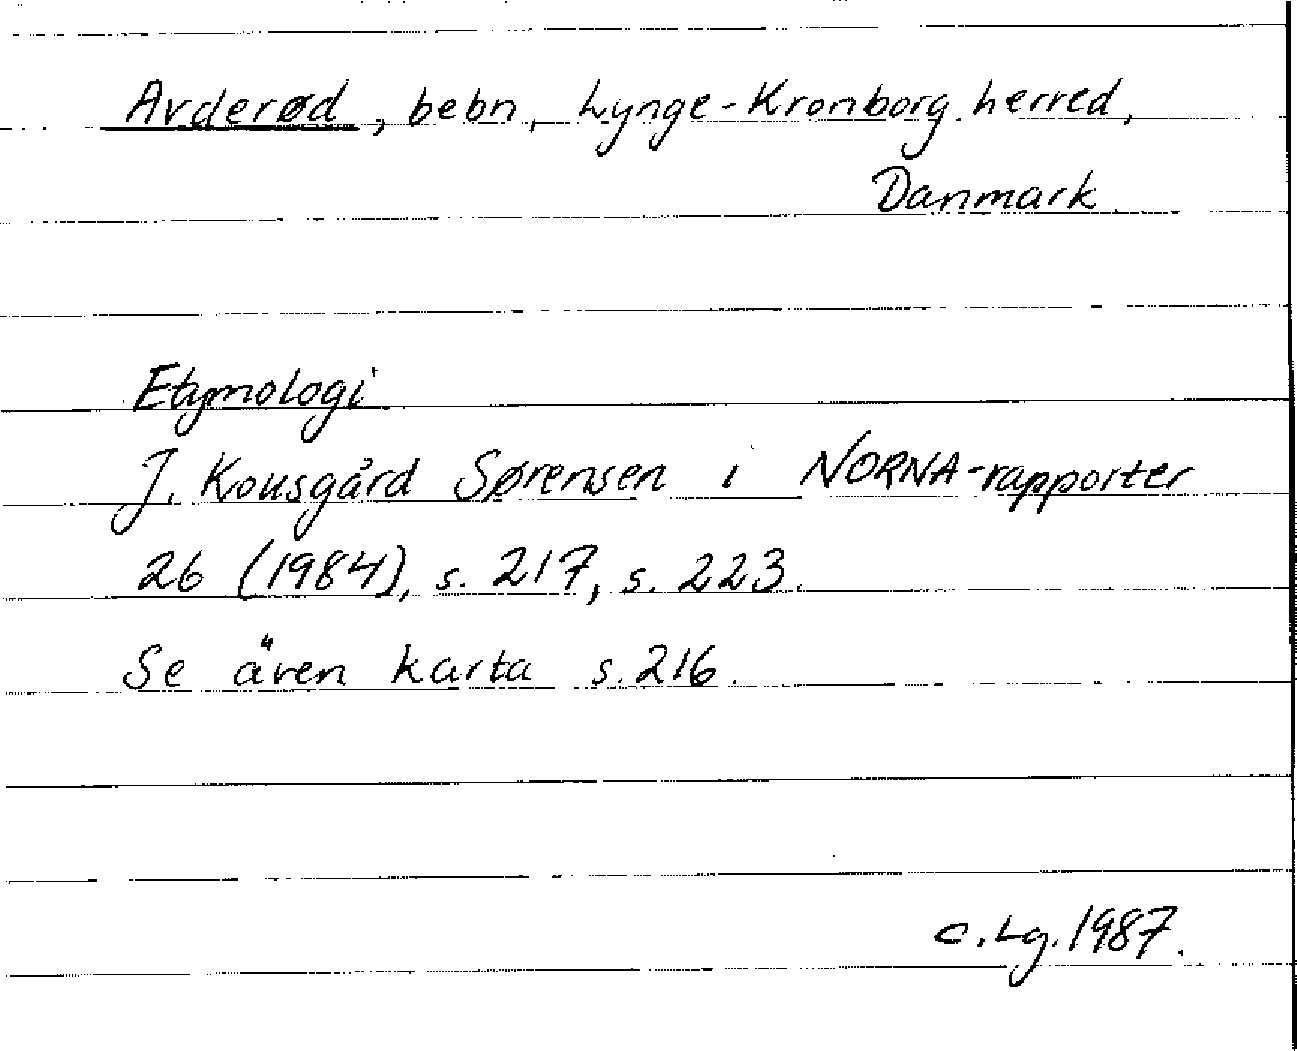 Avderød, bebn, Lynge-Kronborg herred,
Danmark.
Etymologi
J. Kousgård Sørensen i NORNA-rapporter
26 (1984), s. 217, s. 223.
Se även karta s. 216.
C. Lg. 1987.